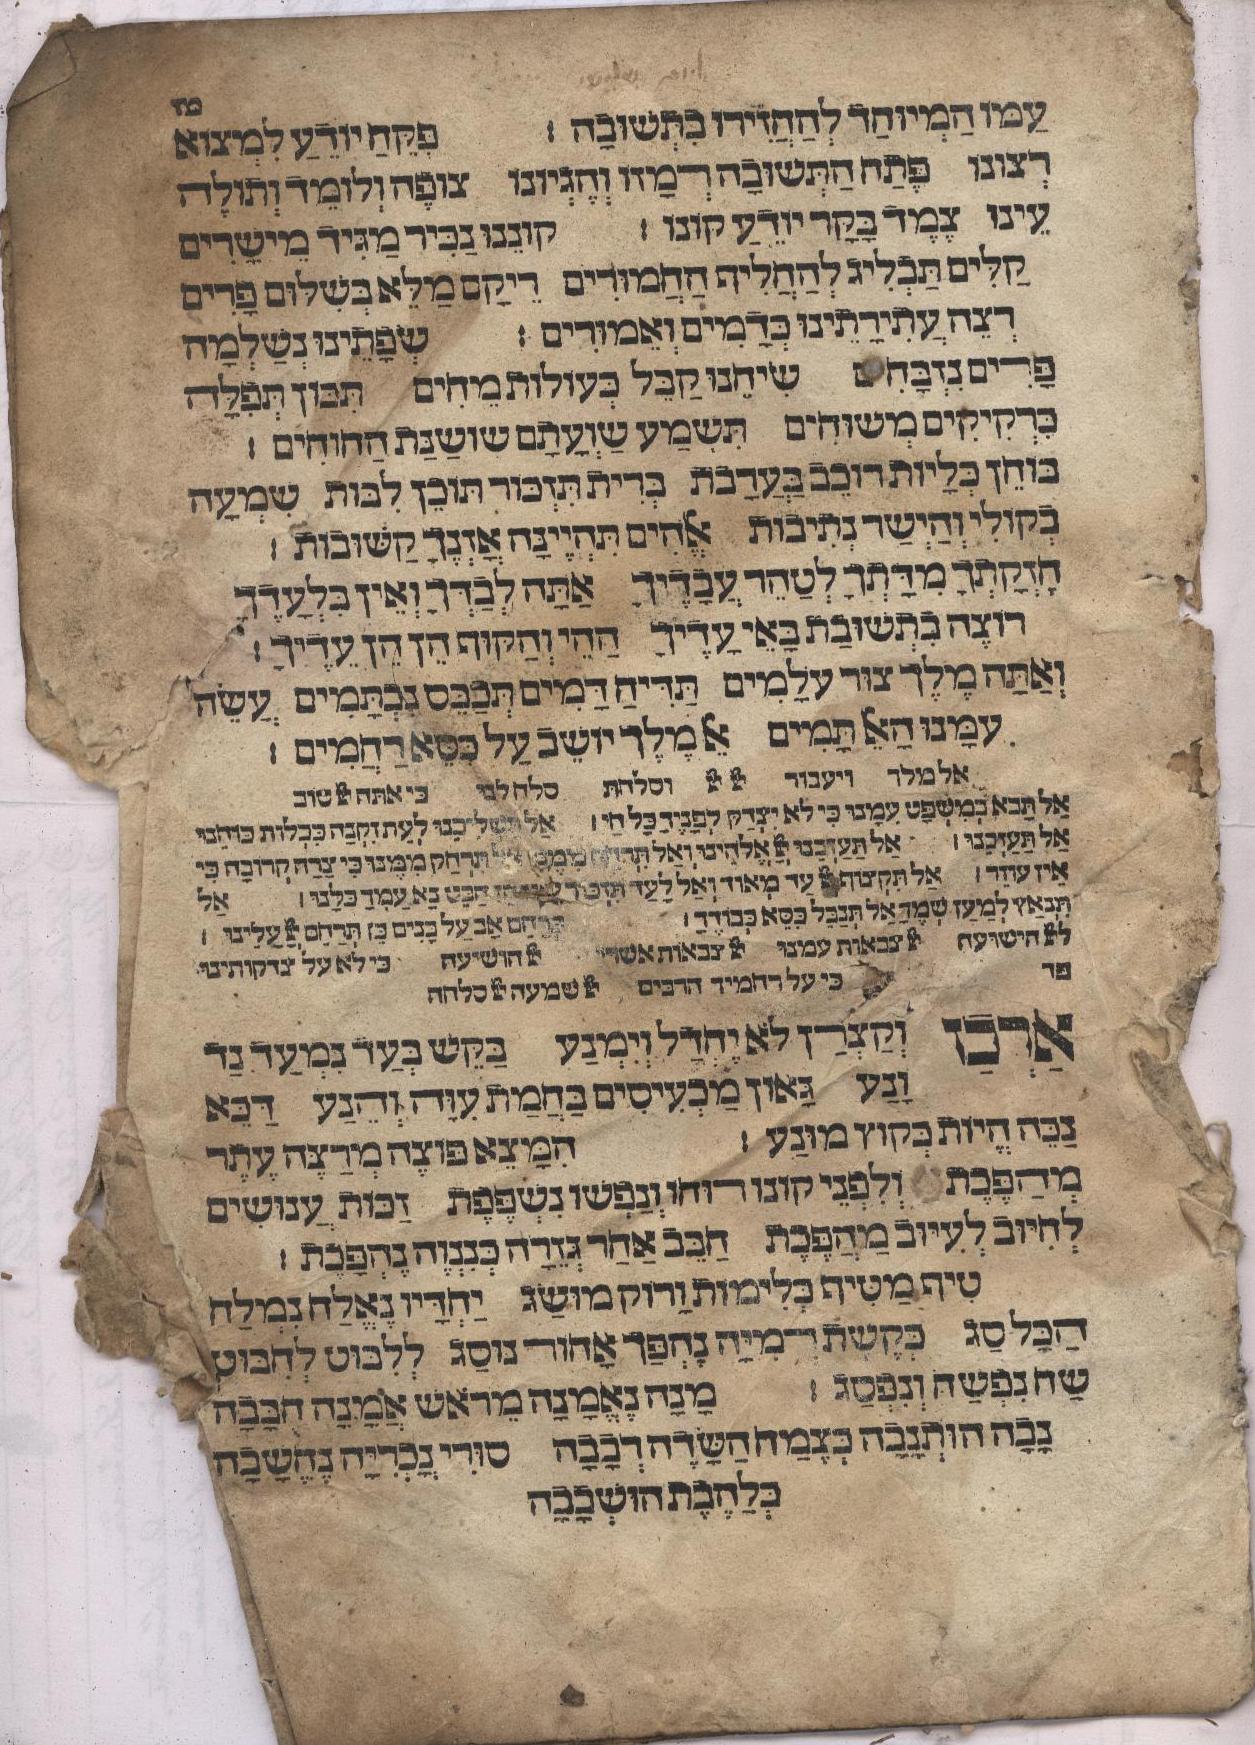 מז
עַמּוֹ הַמְיוּחַד לְהַחֲזִירוֹ בִּתְשׁוּבָה : פִּקֵּחַ יוֹדֵעַ לִמְצוֹא
רְצוֹנוֹ פֶּתַח הַתְּשׁוּבָה רְמָזוֹ וְהֶגְיוֹנוֹ צוֹפֶה וְלוֹמֵד וְתוֹלֶה
עֵינוֹ צֶמֶד בָּקָר יוֹדֵעַ קוֹנוֹ : קוֹנְנוּ נַכִּיר מַגִּיד מֵישָׁרִים
קַלִּים תַּבְלִיג לְהַחֲלִיף הַחֲמוּרִים רֵיקָם מַלֵּא בְּשִׁלּוּם פָּרִים
רְצֵה עֲתִירָתֵינוּ כְּדָמִים וְאֵמוּרִים : שְׂפָתֵינוּ נְשַׁלְּמָה
פָּרִים נִזְבָּחִים שִׂיחֵנוּ קַבֵּל כְּעוֹלוֹת מֵחִים תִּכּוֹן תְּפִלָּה
כִּרְקִיקִים מְשׁוּחִים תִּשְׁמַע שַׁוְעָתָם שׁוֹשַׁנַּת הַחוֹחִים :
בּוֹחֵן כְּלָיוֹת רוֹכֵב בַּעֲרָבֹת בְּרִית תִּזְכּוֹר תּוֹכֵן לִבּוֹת שִׁמְעָה
בְקוֹלִי וְהַיְשַׁר נְתִיבוֹת אֱהִים תִּהְיֶינָה אָזְנֶךָ קַשּׁוּבוֹת :
חָזְקָתְךָ מִדָּתְךָ לְטַהֵר עֲבָדֶיךָ אַתָּה לְבַדְּךָ וְאֵין בִּלְעָדֶךָ
רוֹצֶה בִתְשׁוּבַת בָּאֵי עָדֶיךָ הַהֵי וְהַקּוֹף הֵן הֵן עֵדֶיךָ :
וְאַתָּה מֶלֶךְ צוּר עֹלָמִים תַּדִּיחַ דָּמִים תְּכַבֵּס נִכְתָּמִים עֲשֵׂה
עִמָּנוּ הָאֵ תָּמִים אֵ מֶלֶךְ יוֹשֵׁב עַל כִּסֵּא רַחֲמִים :
אל מלך ויעבור יי יי וסלחת סלח לנו כי אתה יי טוב
אַל תָּבֹא בְמִשְׁפָּט עִמָּנוּ כִּי לֹא יִצְדַּק לְפָנֶיךָ כָּל חַי : אַל תַּשְׁלִיכֵנוּ לְעֵת זִקְנָה כִּכְלוֹת כּוֹחֵנוּ
אַל תַּעַזְבֵנוּ : אַל תַּעַזְבֵנוּ יְיָ אֱלֹהֵינוּ וְאַל תִּרְחַק מִמֶּנּוּ אַל תִּרְחַק מִמֶּנּוּ כִּי צָרָה קְרוֹבָה כִּי
אֵין עוֹזֵר : אַל תִּקְצוֹף יְיָ עַד מְאוֹד וְאַל לָעַד תִּזְכּוֹר עָוֹן הֵן הַבֶּט נָא עַמְּךָ כֻלָּנוּ : אַל
תִּנְאַץ לְמַעַן שִׁמְךָ אַל תְּנַבֵּל כִּסֵּא כְבוֹדֶךָ : כְּרַחֵם אָב עַל בָּנִים כֵּן תְּרַחֵם יְיָ עָלֵינוּ :
ליי הישועה יי צבאות עמנו יי צבאות אשרי יי הושיעה כי לא על צדקותינו
כי על רחמיך הרבים יי שמעה יי סלחה פז
אַרְכָן וְקַצְרָן לֹא יֶחְדַּל וְיִמְנַע בַּקֵּשׁ בְּעַד נִמְעַד נַד
וָנַע גָּאוֹן מַכְעִיסִים בַּחֲמַת עִוָּה וְהֵנַע דַּכֵּא
נַבֵּה הֱיוֹת כְּקוֹץ מוּנַע : הִמָּצֵא פּוֹצֶה מְרַצֶּה עֶתֶר
מְהַפֶּכֶת וְלִפְנֵי קוֹנוֹ רוּחוֹ וְנַפְשׁוֹ נִשְׁפֶּפֶת זַכּוֹת עֲנוּשִׁים
לְחִיּוּב לְעִיּוּב מַהֲפֶּכֶת חַבֵּב אַחַר גְּזֵרָה כְּנִנְוֵה נֶהְפָּכֶת :
טִיף מַטִּיף כְּלִימוֹת וָרוֹק מוּשַּׂג יַחְדָּיו נֶאֱלַח נִמְלַח
הַכָּל סַג כְּקֶשֶׁת רְמִיָּה נֶהְפַּךְ אָחוֹר נוּסַג לִלְבּוֹט לַחְבּוֹט
שַׁח נַפְשָׁהּ וְנִפְסַג : מָנָה נֶאֱמָנָה מֵרֹאשׁ אֲמָנָה חִבָּבָה
נָבָה הוּתְנָבָה כְּצֶמַח הַשָּׂדֶה רְבָבָה סוּרֵי נָכְרִיָּה נֶחֱשָׁבָה
כְּלַהֶבֶת הוּשְׁבָבָה